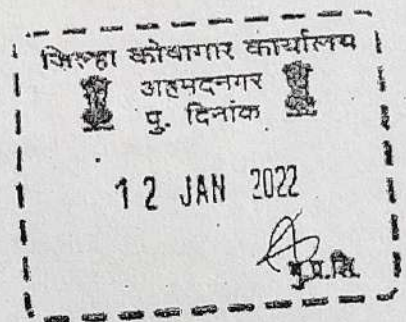 जिल्हा कोषागार कार्यालय
अहमदनगर
पु. दिनांक
12 JAN 2022
मु.प्र.लि.